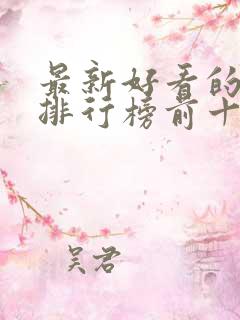 最新好看的
排行榜前十
吴君